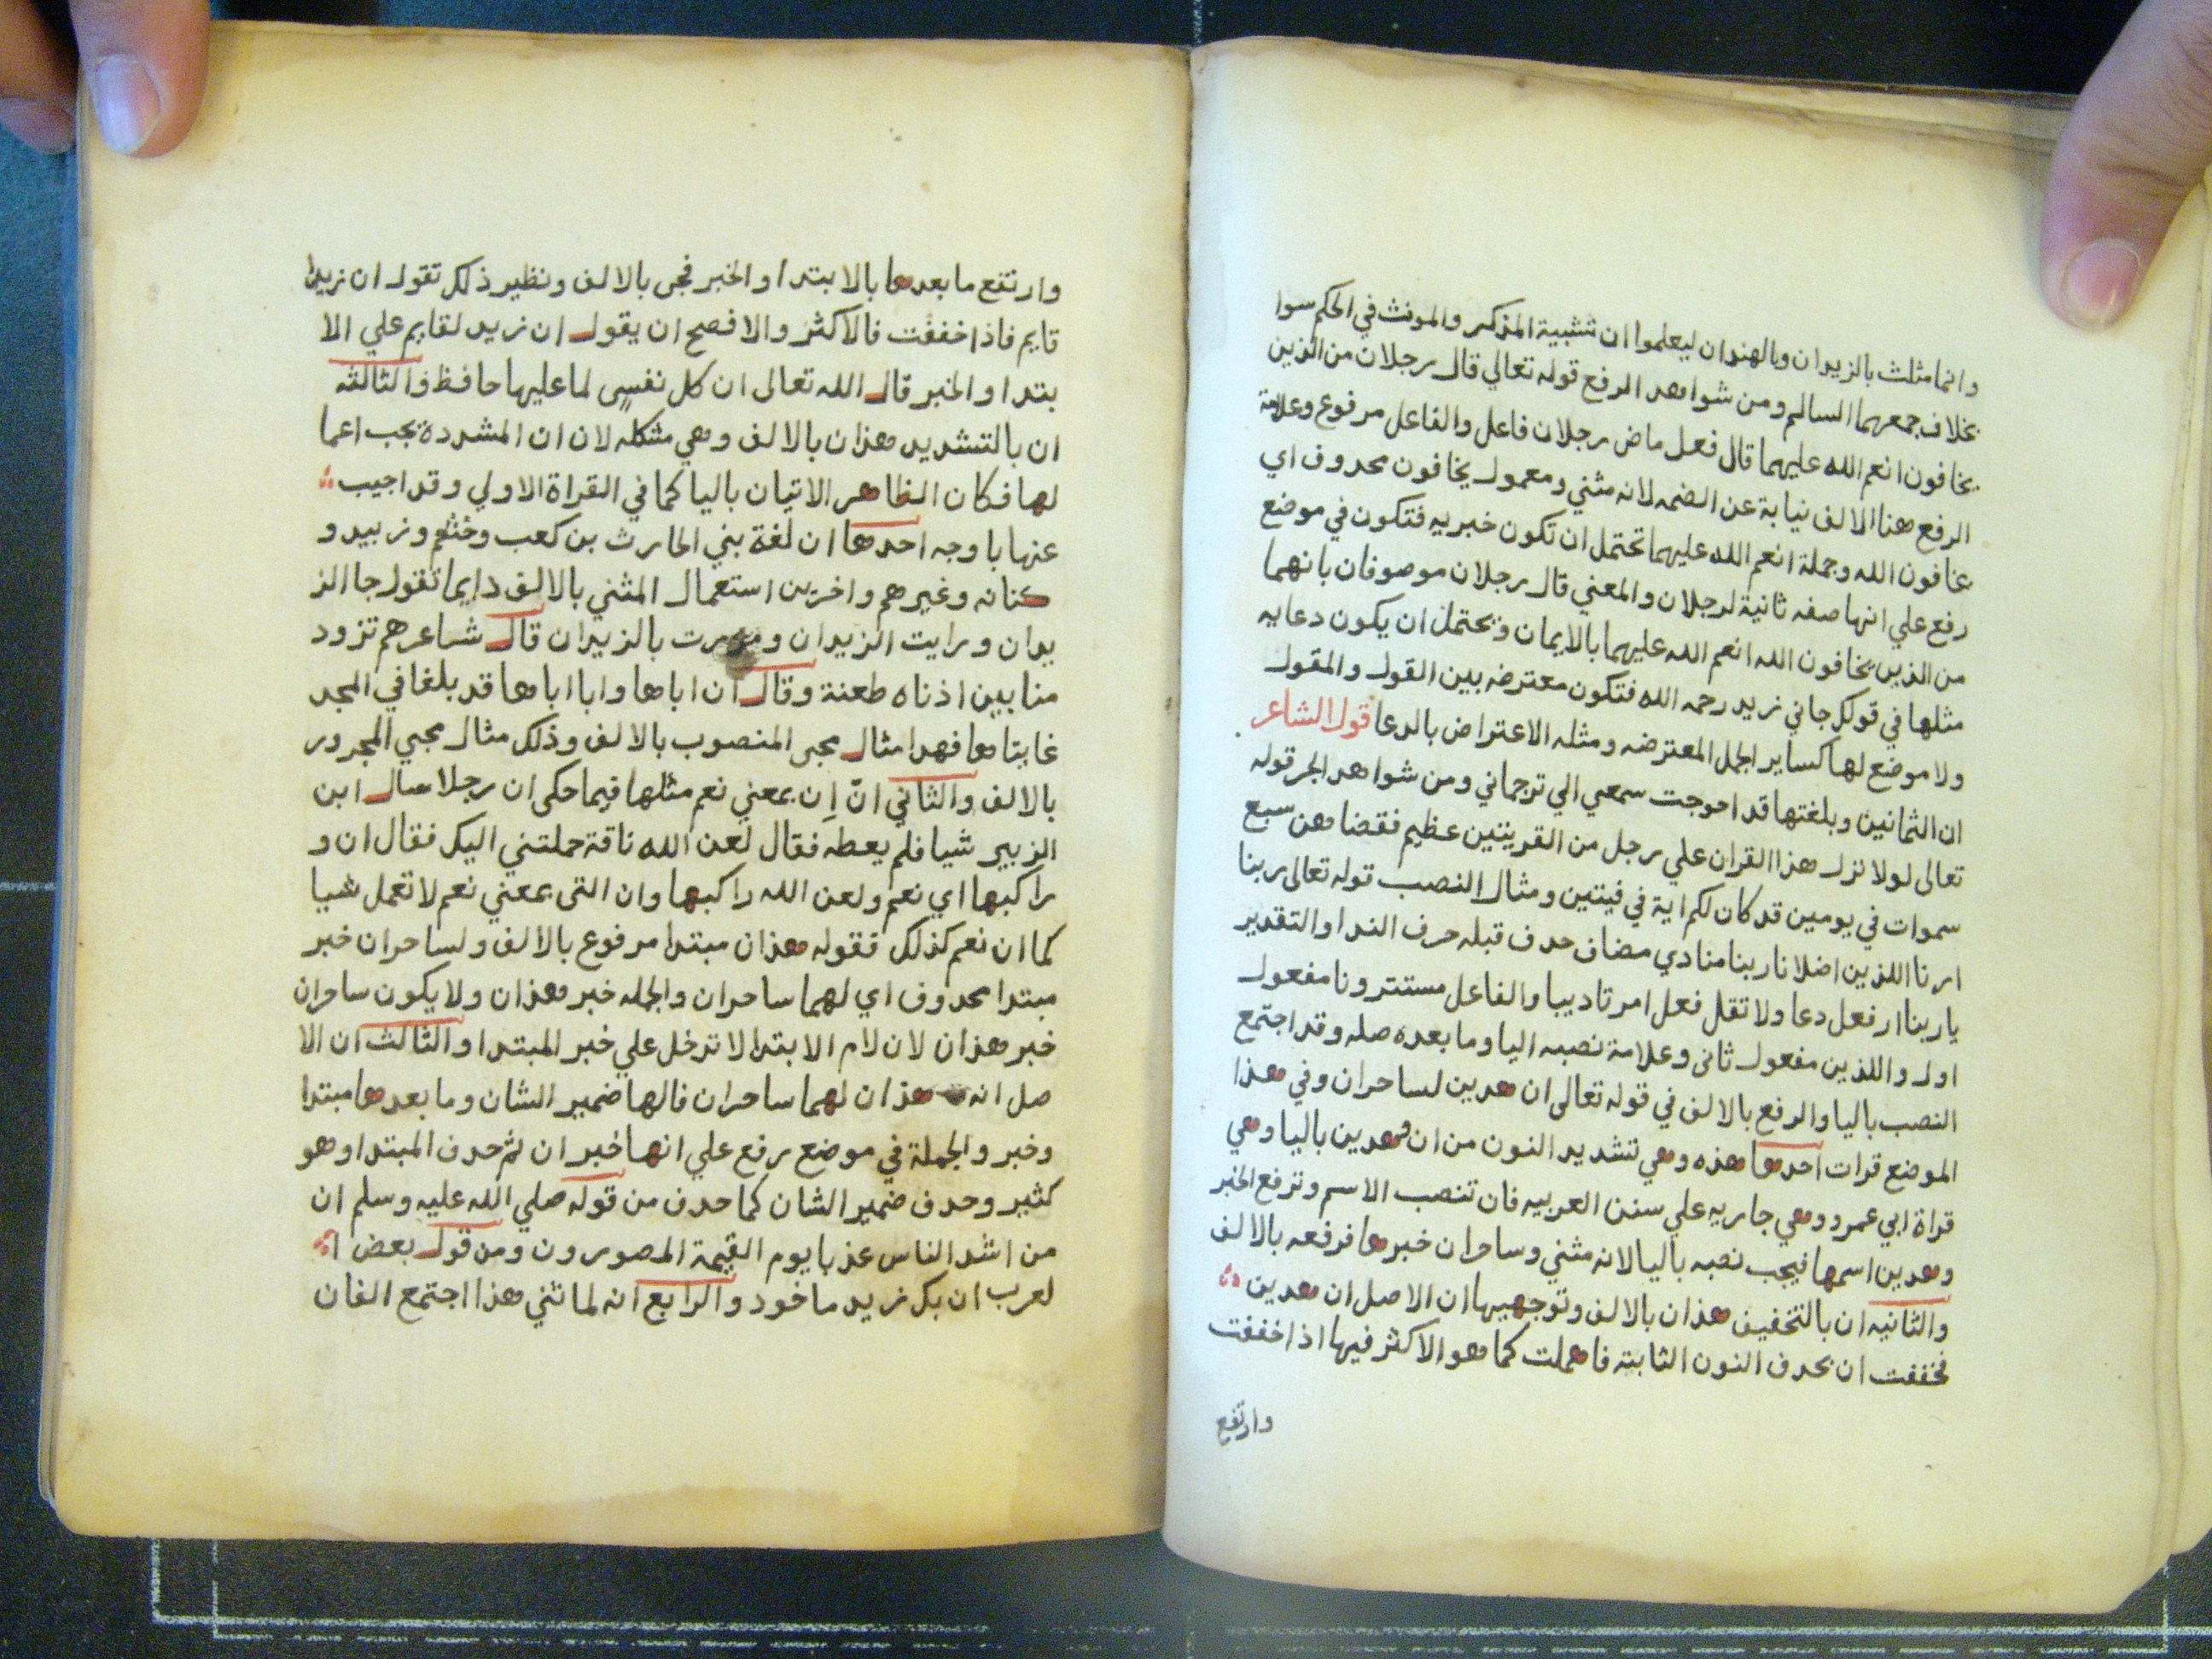 وانما مثلث بالزيدان وبالهندان ليعلموا ان تثنية المذكر والمونث في الحكم سوا
بخلاف جمعهما السالم ومن شواهد الرفع قوله تعالي قال رجلان من الذين
يخافون انعم الله عليهما قال فعل ماض رجلان فاعل والفاعل مرفوع وعلامة
الرفع هنا الالف نيابة عن الضمه لانه مثني ومعمول يخافون محدوف اي
يخافون الله وجملة انعم الله عليهما تحتمل ان تكون خبريه فتكون في موضع
رفع علي انها صفه ثانية لرجلان والمعني قال رجلان موصوفان بانهما
من الذين يخافون الله انعم الله عليهما بالايمان ويحتمل ان يكون دعايه
مثلها في قولك جاني زيد رحمه الله فتكون معترضه بين القول والمقول
ولا موضع لها كساير الجمل المعترضه ومثله الاعتراض بالدعا قول الشاعر
ان الثمانين وبلغتها قد احوجت سمعي الي ترجماني ومن شواهد الجر قوله
تعالى لولا نزل هذا القران علي رجل من القريتين عظيم فقضاهن سبع
سموات في يومين قد كان لكم اية في فيتين ومثال النصب قوله تعالى ربنا
ارنا اللذين اضلانا ربنا منادي مضاف حدف قبله حرف الندا والتقدير
يا ربنا ار فعل دعا ولا تقل فعل امر تاديبا والفاعل مستتر ونا مفعول
اول واللذين مفعول ثانى وعلامة نصبه اليا وما بعده صله وقد اجتمع
النصب باليا والرفع بالالف في قوله تعالى ان هدين لساحران وفي هذا
الموضع قرات احدها هذه وهي تشديد النون من ان وهدين باليا وهي
قراة ابي عمرو وهي جاريه علي سنن العربيه فان تنصب الاسم وترفع الخبر
وهدين اسمها فيجب نصبه باليا لانه مثني وساحران خبرها فرفعه بالالف
والثانيه ان بالتخفيف هذان بالالف وتوجهيها ان الاصل ان هدين
فخففت ان بحدف النون الثابته فاهملت كما هو الاكثر فيها اذا خففت
وارتفع
وارتفع ما بعدها بالابتدا والخبر فجى بالالف ونظير ذلك تقول ان زيدا
قايم فاذا خففت فالاكثر والافصح ان يقول ان زيد لقايم علي الا
بتدا والخبر قال الله تعالى ان كل نفس لما عليها حافظ والثالثه
ان بالتشديد هذان بالالف وهي مشكله لان ان المشددة يجب اعما
لها فكان الظاهر الاتيان باليا كما في القراة الاولي وقد اجيب
عنها باوجه احدها ان لغة بني الحارث بن كعب وخثعم وزبيد و
كنانه وغيرهم واخرين استعمال المثني بالالف دايما تقول جا الز
يدان ورايت الزيدان ومررت بالزيدان قال شاعرهم تزود
منا بين اذناه طعنة وقال ان اباها وابا اباها قد بلغا في المجد
غايتاها فهدا مثال مجى المنصوب بالالف وذلك مثال مجي المجرور
بالالف والثاني انّ اِن بمعني نعم مثلها فيما حكى ان رجلا سال ابن
الزبير شيا فلم يعطه فقال لعن الله ناقة حملتني اليك فقال ان و
راكبها اي نعم ولعن الله راكبها وان التى بمعني نعم لا تعمل شيا
كما ان نعم كذلك فقوله هذان مبتدا مرفوع بالالف ولساحران خبر
مبتدا محدوف اي لهما ساحران والجمله خبر هذان ولا يكون ساحران
خبر هذان لان لام الابتدا لا تدخل علي خبر المبتدا والثالث ان الا
صل انه هذان لهما ساحران فالها ضمير الشان وما بعدها مبتدا
وخبر والجملة في موضع رفع علي انها خبر ان ثم حدف المبتدا وهو
كثير وحدف ضمير الشان كما حدف من قوله صلي الله عليه وسلم ان
من اشد الناس عذبا يوم القيمة المصورون ومن قول بعض ا
لعرب ان بك زيد ماخود والرابع انه لما ثني هذا اجتمع الفان